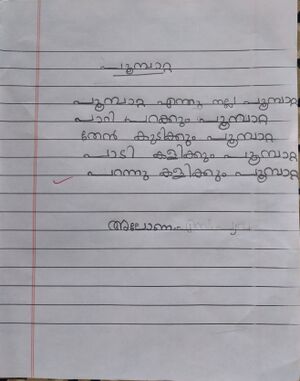 പൂമ്പാറ്റ
പൂമ്പാറ്റ എന്തു നല്ല പൂമ്പാറ്റ
പാറി പറക്കും പൂമ്പാറ്റ
തേൻ കുടിക്കും പൂമ്പാറ്റ
പാടി കളിക്കും പൂമ്പാറ്റ
പറന്നു കളിക്കും പൂമ്പാറ്റ
അലോണ